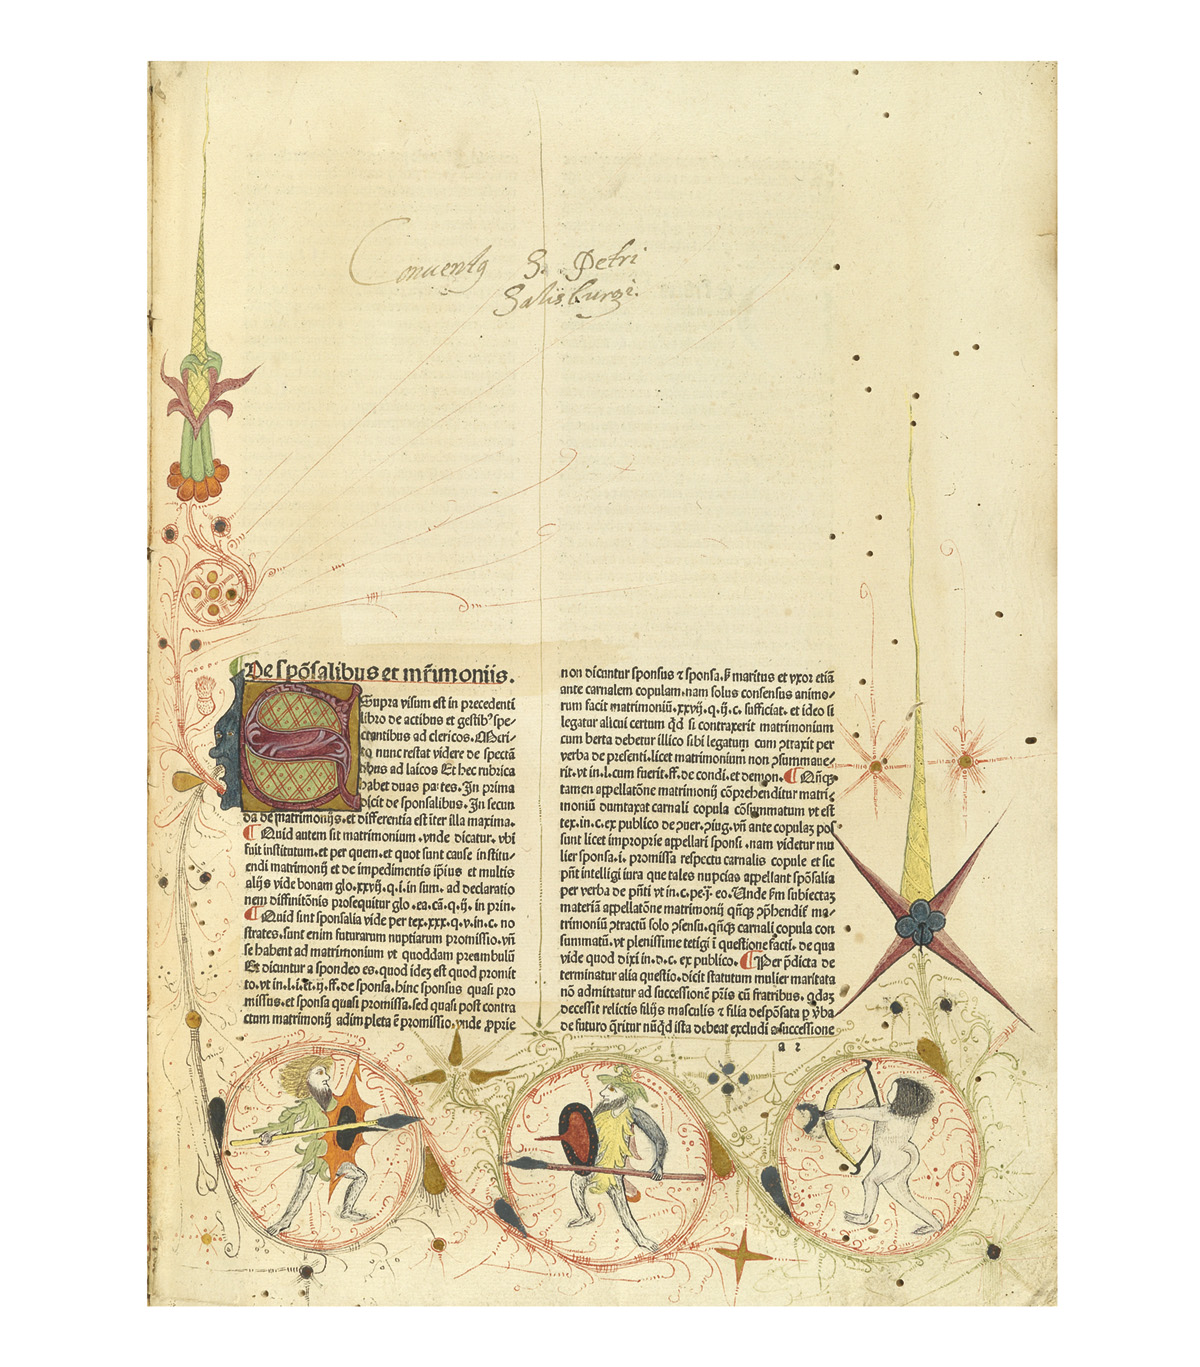 Conuentꝯ S. Petri
Salisburgi.
De spōsalibus et mr̄imoniis.
Supra visum est in precedenti
libro de actibus et gestibꝰ spe⸗
ctantibus ad clericos. Meri⸗
to nunc restat videre de spectā
tibus ad laicos Et hec rubrica
habet duas partes. In prima
dicit de sponsalibus. In secun
da de matrimonijs. et differentia est īter illa maxima.
¶ Quid autem sit matrimonium. vnde dicatur. vbi
fuit institutum. et per quem. et quot sunt cause institu⸗
endi matrimonij et de impedimentis ip̄ius et multis
alijs vide bonam glo. xxvij. q. i. in sum. ad declaratio
nem diffinitōnis prosequitur glo. ea. cā. q. ij. in prin.
¶ Quid sint sponsalia vide per tex. xxx. q. v. in c. no
strates. sunt enim futurarum nuptiarum promissio. vn̄
se habent ad matrimonium vt quoddam preambulū
Et dicuntur a spondeo es. quod ideꝫ est quod promit
to. vt in l. i. et. ij. ff. de sponsa. hinc sponsus quasi pro
missus. et sponsa quasi promissa. sed quasi post contra
ctum matrimonij adimpleta ē promissio. vnde ꝓprie
non dicuntur sponsus ⁊ sponsa. ß maritus et vxor etiā
ante carnalem copulam. nam solus consensus animo⸗
rum facit matrimoniū. xxvij. q. ij. c. sufficiat. et ideo si
legatur alicui certum qd̄ si contraxerit matrimonium
cum berta debetur illico sibi legatum cum ꝯtraxit per
verba de presenti. licet matrimonium non ꝯsummaue⸗
rit. vt in. l. cum fuerit. ff. de condi. et demon. ¶ Qn̄qꝫ
tamen appellatōne matrimonij cōprehenditur matri⸗
moniū dumtaxat carnali copula cōsummatum vt est
tex. in. c. ex publico de ꝯuer. ꝯiug. vn̄ ante copulaꝫ pos
sunt licet improprie appellari sponsi. nam videtur mu
lier sponsa. i. promissa respectu carnalis copule et sic
pn̄t intelligi iura que tales nupcias appellant spōsalia
per verba de pn̄ti vt in. c. pe. eo. Unde ßm subiectaꝫ
materiā appellatōne matrimonij qn̄qꝫ ꝯp̄hendit̄ ma⸗
trimoniū ꝯtractū solo ꝯsensu. qn̄qꝫ carnali copula con
summatū. vt plenissime tetigi ī questione facti. de qua
vide quod dixi in. d. c. ex publico. ¶ Per p̄dicta de
terminatur alia questio. dicit statutum mulier maritata
nō admittatur ad successionē pr̄is cū fratribus. qdaꝫ
decessit relictis filijs masculis ⁊ filia despōsata ꝑ v̄ba
de futuro q̄ritur nūqd ista debeat excludi a successione
a 2